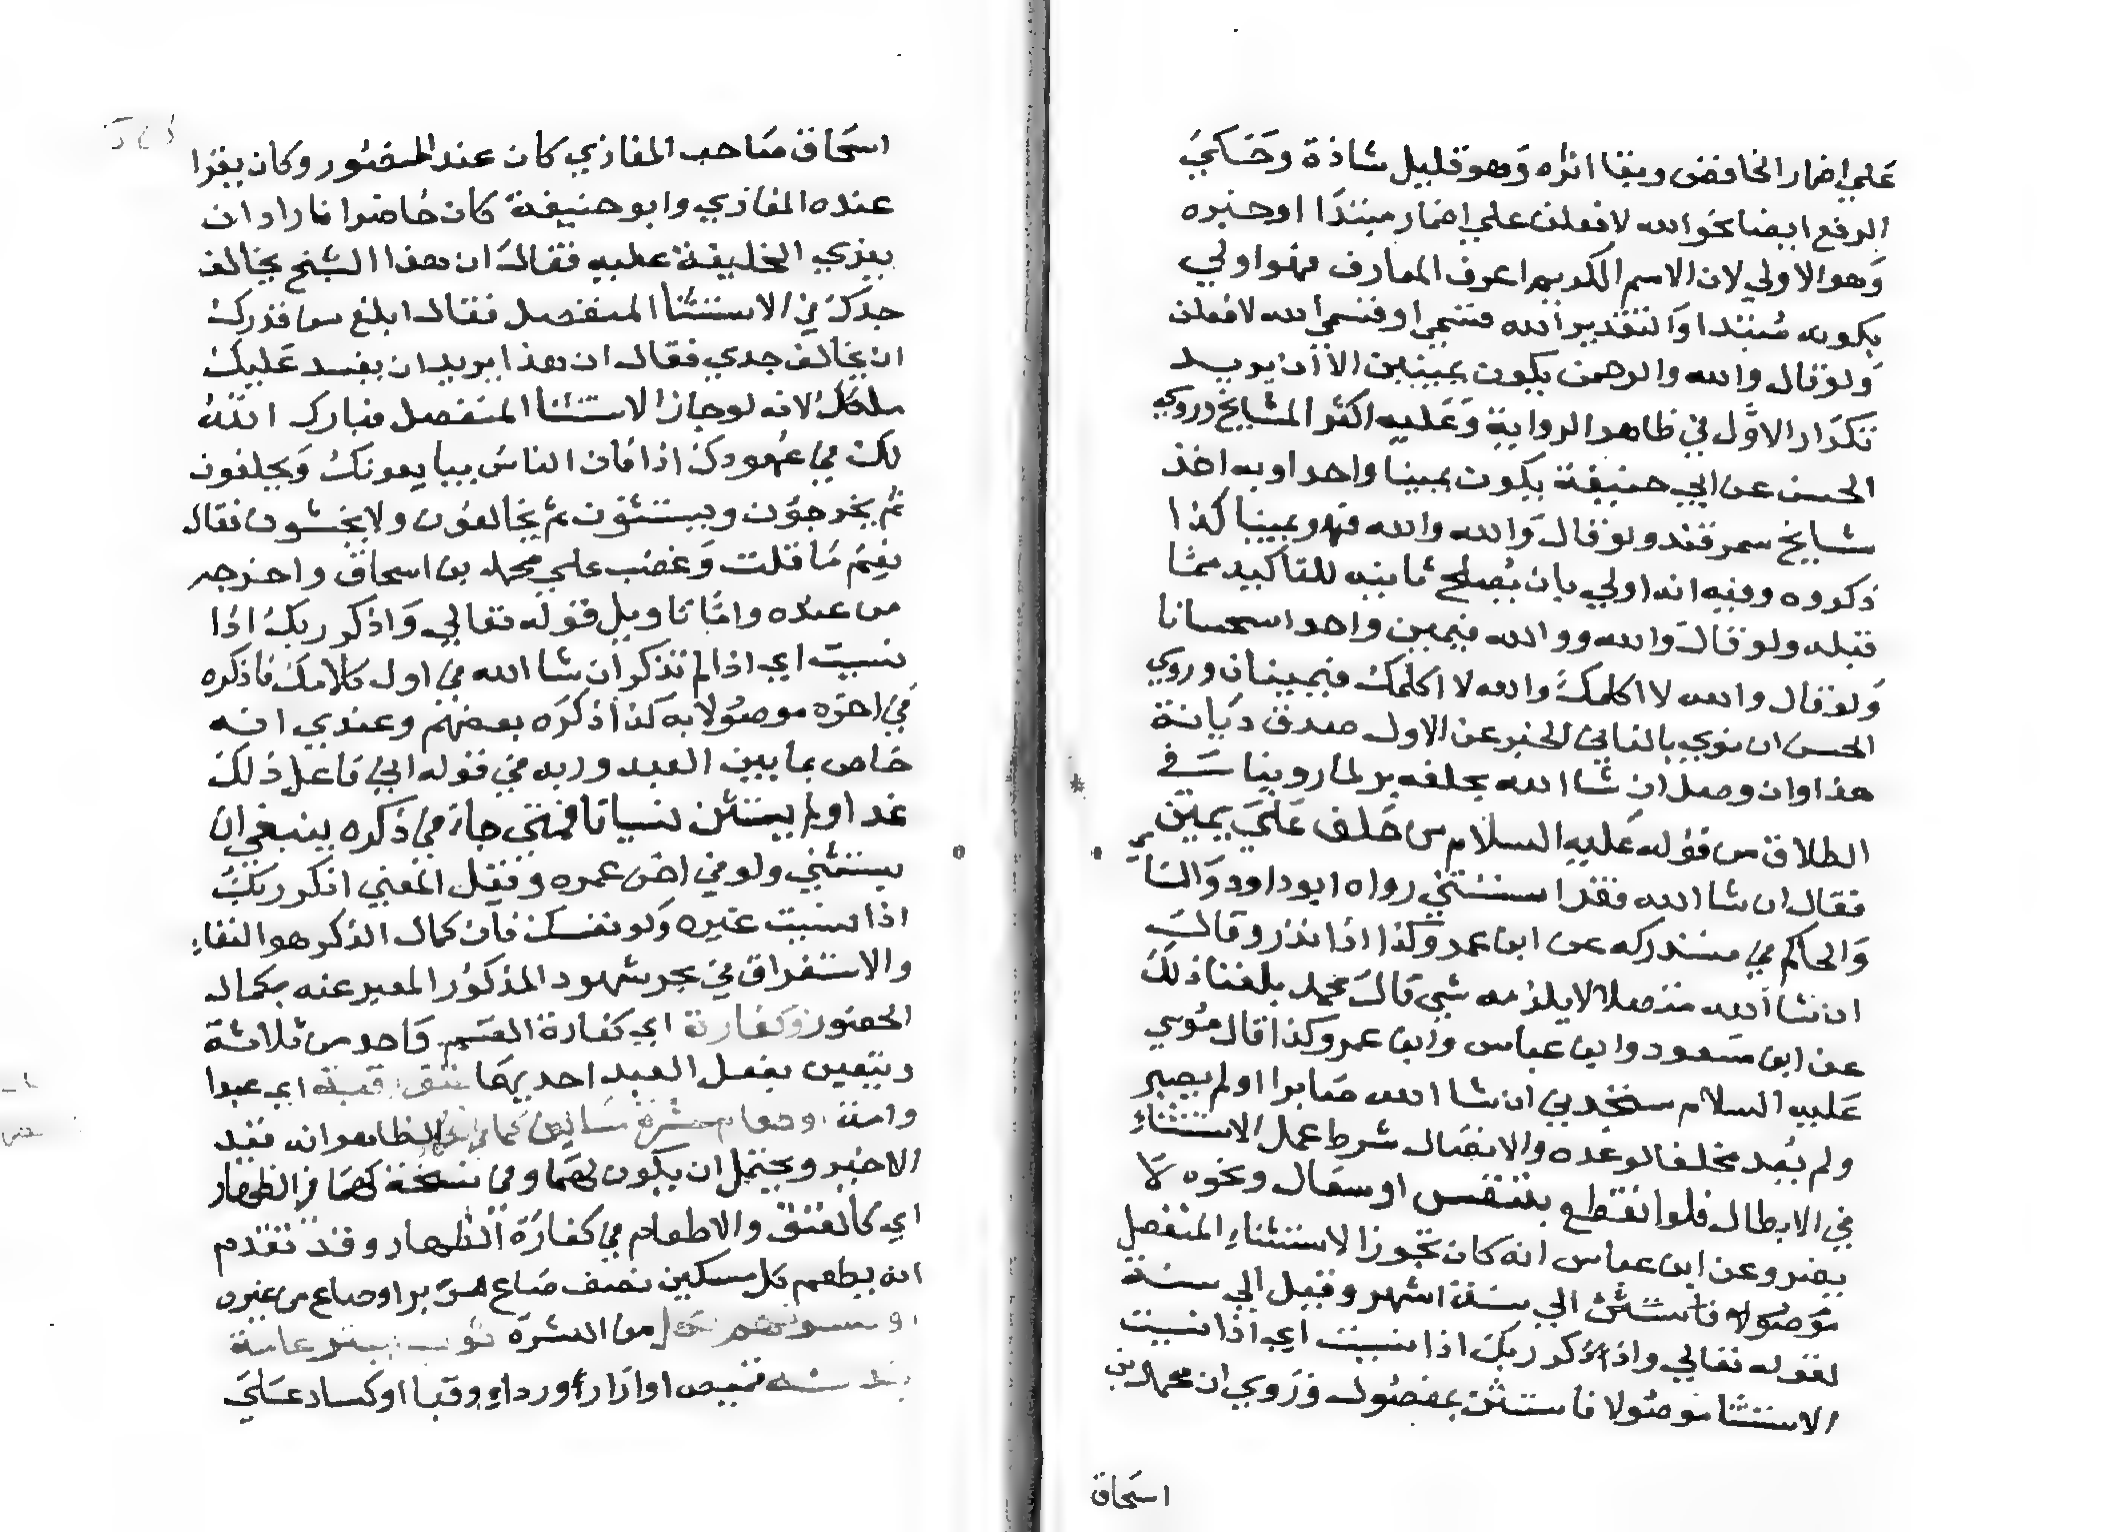 علي اضمار الخافض وبقا اثره وهو قليل شاذة وحكي
الرفع ايضا نحو الله لافعلن علي اضمار مبتدا او خبره
وهو الاولي لان الاسم الكريم اعرف المعارف فهو اولي
بكونه مبتدا والتقدير الله قسمي او قسمي الله لافعلن
ولو قال والله والرحمن يكون يمينين الا ان يريد
تكرار الاول في ظاهر الرواية وعليه اكثر المشايخ وروي
الحسن عن ابي حنيفة يكون يمينا واحدا وبه اخذ
مشايخ سمرقند ولو قال والله والله فهو يمينا كذا
ذكروه وفيه انه اولي بان يصلح ثانيه للتاكيد مما
قبله ولو قال والله ووالله فيمين واحد استحسانا
ولو قال والله لا اكلمك والله لا اكلمك فيمينان وروي
الحسن ان نوي بالثاني الخبر عن الاول صدق ديانة
هذا وان وصل ان شا الله بحلفه بر لما روينا في
الطلاق من قوله عليه السلام من حلف علي يمين
فقال ان شا الله فقد استثني رواه ابو داود والنسائي
والحاكم في مستدركه عن ابن عمر وكذا اذا نذر وقال
ان شا الله متصلا لا يلزمه شي قال محمد بلغنا ذلك
عن ابن مسعود وابن عباس وابن عمر وكذا قال موسي
عليه السلام ستجدني ان شا الله صابرا ولم يصبر
ولم يعد مخلفا لوعده والاتصال شرط عمل الاستثناء
في الابطال فلو انقطع بتنفس او سعال ونحوه لا
يضر وعن ابن عباس انه كان يجوز الاستثناء المنفصل
موصولا فاستثن الي ستة اشهر وقيل الي سنة
لقوله تعالي واذكر ربك اذا نسيت اي اذا نسيت
الاستثنا موصولا فاستثن بمفصول وروي ان محمد بن
اسحاق
اسحاق صاحب المغازي كان عند المنصور وكان يقرا
عنده المغازي وابو حنيفة كان حاضرا فاراد ان
يغري الخليفة عليه فقال ان هذا الشيخ يخالف
جدك في الاستثنا المنفصل فقال ابلغ من قدرك
ان يخالف جدي فقال ان هذا يريد ان يفسد عليك
ملكك لانه لو جاز الاستثنا المنفصل فبارك الله
لك في عهودك اذا فان الناس يبايعونك ويحلفون
ثم يخرجون ويستثنون ثم يخالفون ولا يحنثون فقال
نعم ما قلت وغضب علي محمد بن اسحاق واخرجه
من عنده واما تاويل قوله تعالي واذكر ربك اذا
نسيت اي اذا لم تذكر ان شا الله في اول كلامك فاذكره
في اخره موصولا به كذا ذكره بعضهم وعندي انه
خاص بما بين العبد وربه في قوله اني فاعل ذلك
غدا ولم يستثن نسيانا فمتي جاء في ذكره ينبغي ان
يستثني ولو في اخر عمره وقيل المعني اذكر ربك
اذا نسيت غيره ولو نفسك فان كمال الذكر هو الفناء
والاستغراق في بحر شهود المذكور المعبر عنه بكمال
الحضور وكفارة اي كفارة القسم واحد من ثلاثة
ويتعين بفعل العبد احديها عتق رقبة اي عبدا
وامة او طعام عشرة مساكين كما في الظاهر انه قيد
الاخير ويحتمل ان يكون لهما وفي نسخة كهما في الظهار
اي كالعتق والاطعام في كفارة الظهار وقد تقدم
انه يطعم كل مسكين نصف صاع من بر او صاع من غيره
او كسوتهم لكل من العشرة ثوب يستر عامة
بدنه قميص او ازار او رداء او قبا او كساء علي